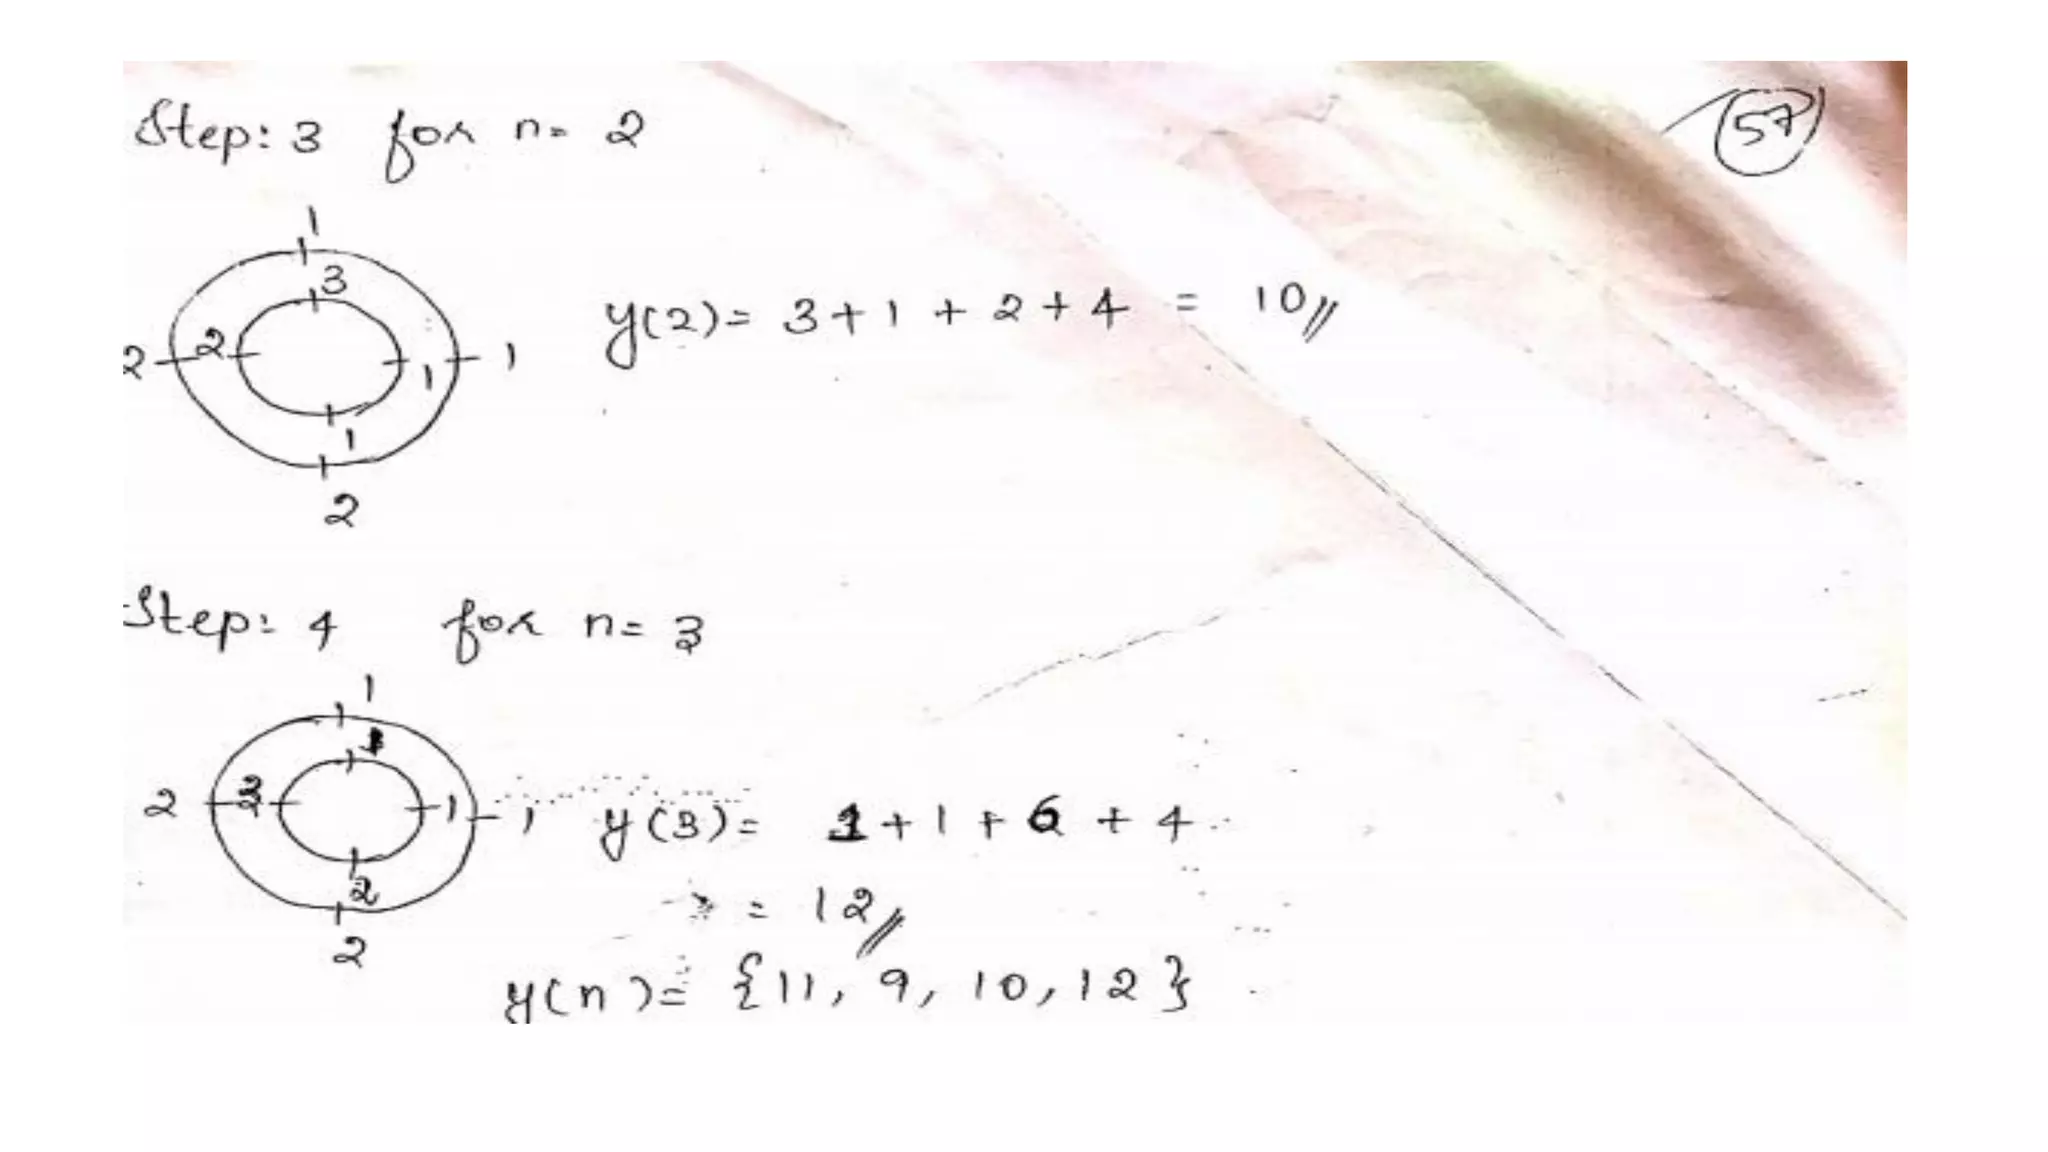 Step: 3 for n= 2
57
1
3
2 2 1 1
1
2
y(2)= 3+1+2+4 = 10//
Step: 4 for n= 3
1
1
2 3 1 1
2
2
y(3)= 1+1+6+4
= 12//
y(n)= {11, 9, 10, 12}